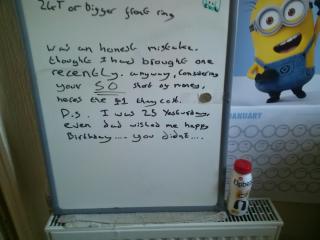 24T or bigger front ring
was an honest mistake.
thought I had brought one
recently. anyway, considering
your SO short of money,
heres the £1 they cost.
P.s. I was 25 Yesturday,
even dad wished me happy
Birthday.... you didnt....
JANUARY